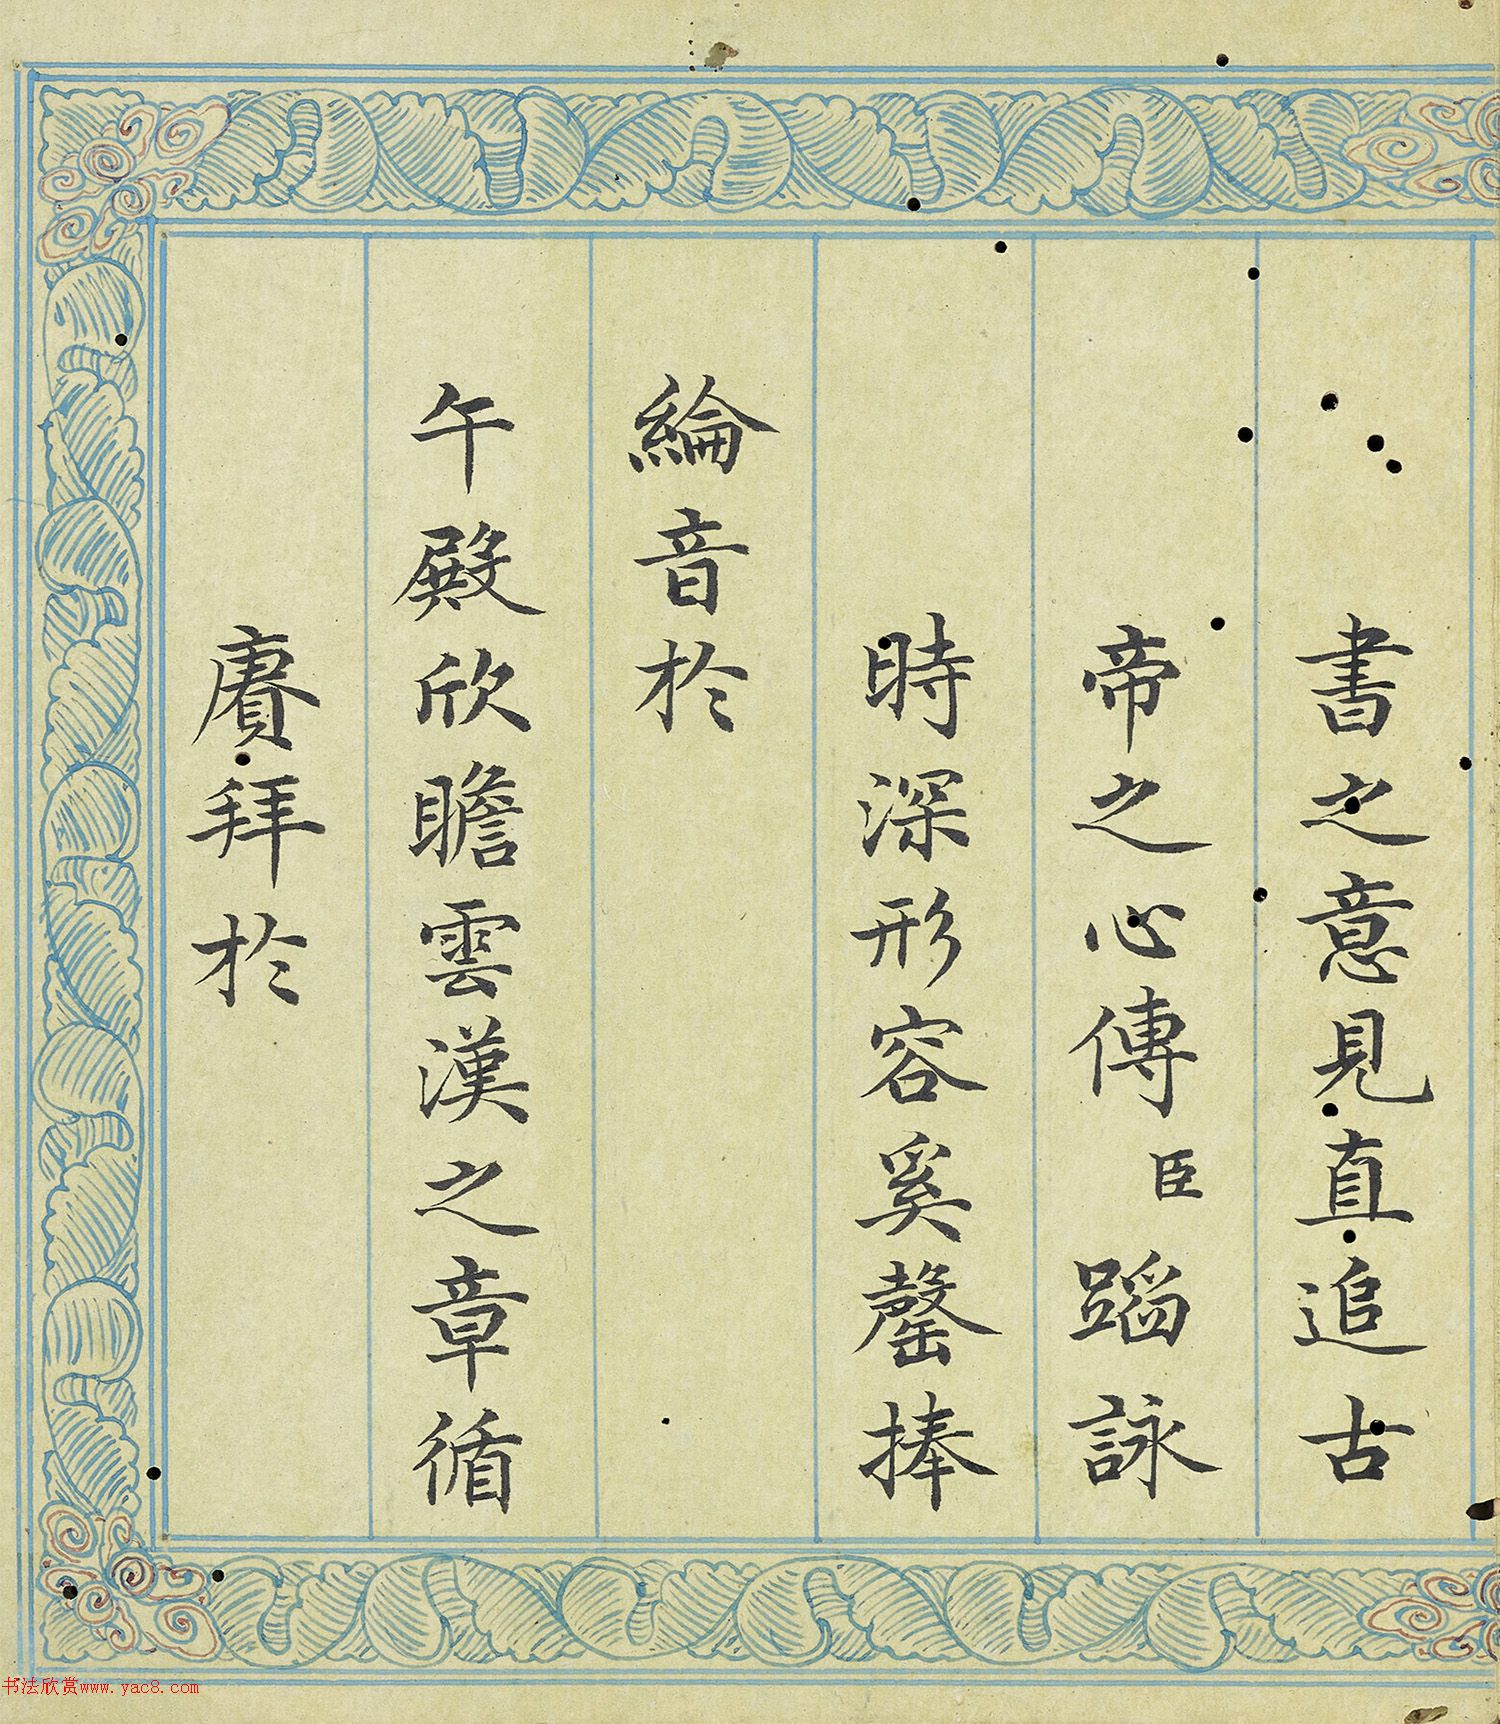 書之意見直追古
帝之心傳臣蹈詠
時深形容奚罄捧
綸音於
午殿欣瞻雲漢之章循
賡拜於
书法欣赏www.yac8.com